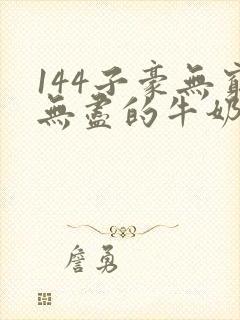 144子豪無窮
無盡的牛奶
詹勇